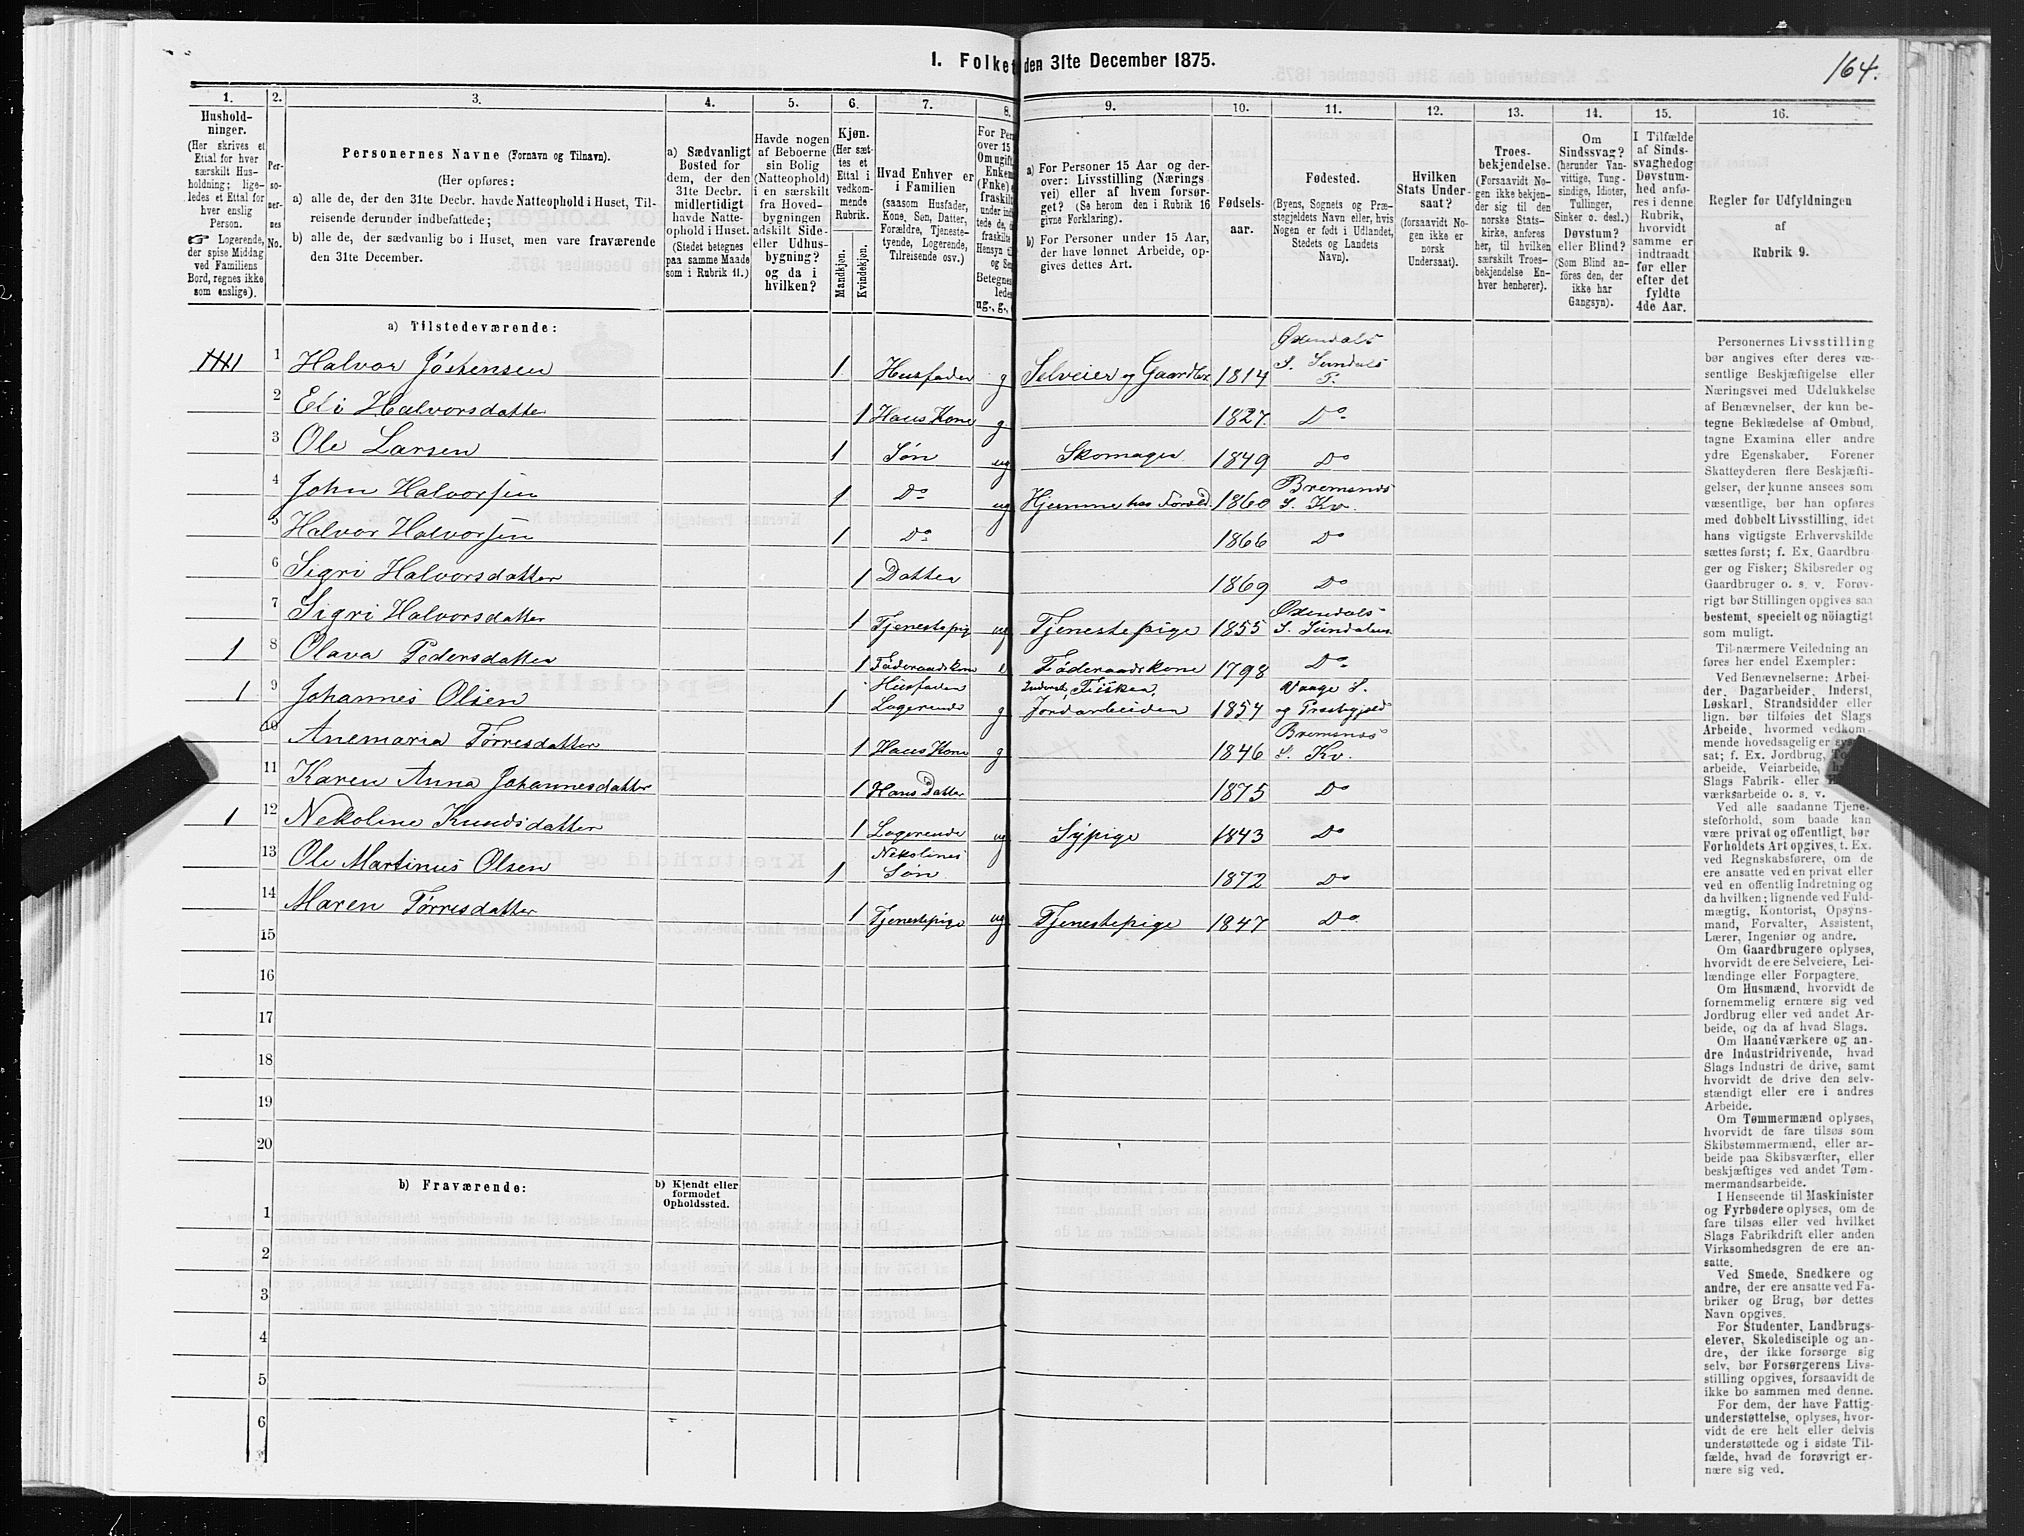 1. Folket den 31te December 1875.
164.
1. 2. 3. 4. 5. 6. 7. 8. 9. 10. 11. 12. 13. 14. 15. 16.
Hushold-
ninger.
(Her skrives et
Ettal for hver
særskilt Hus-
holdning; lige-
ledes et Ettal for
hver enslig
Person.
☞ Logerende,
der spise Middag
ved Familiens
Bord, regnes ikke
som enslige).
Per-
so-
ner-
nes
No.
Personernes Navne (Fornavn og Tilnavn).
(Her opføres:
a) alle de, der den 31te Decbr. havde Natteophold i Huset, Til-
reisende derunder indbefattede;
b) alle de, der sædvanlig bo i Huset, men vare fraværende
den 31te December.
a) Sædvanligt
Bosted for
dem, der den
31te Decbr.
midlertidigt
havde Natte-
ophold i Huset.
(Stedet betegnes
paa samme Maade
som i Rubrik 11.)
Havde nogen
af Beboerne
sin Bolig
(Natteophold)
i en særskilt
fra Hoved-
bygningen
adskilt Side-
eller Udhus-
bygning?
og da i
hvilken?
Kjøn.
(Her sæt-
tes et
Ettal i
vedkom-
mende
Rubrik.
Mandkjøn.
Kvindekjøn.
Hvad Enhver er
i Familien
(saasom Husfader,
Kone, Søn, Datter,
Forældre, Tjeneste-
tyende, Logerende,
Tilreisende osv.)
For Per
over 15
Om ugift
Enkem
(Enke) e
fraskilt
ug., g.,
a) For Personer 15 Aar og der-
over: Livsstilling (Nærings-
vei) eller af hvem forsør-
get? (Se herom den i Rubrik 16
givne Forklaring).
b) For Personer under 15 Aar,
der have lønnet Arbeide, op-
gives dettes Art.
Fødsels-
aar.
Fødested.
(Byens, Sognets og Præ-
stegjeldets Navn eller, hvis
Nogen er født i Udlandet,
Stedets og Landets
Navn).
Hvilken
Stats Under-
saat?
(forsaavidt No-
gen ikke er
norsk
Undersaat).
Troes-
bekjendelse.
(Forsaavidt No-
gen ikke bekjen-
der sig til den
norske Stats-
kirke, anføres
her, til hvilken
særskilt Troes-
bekjendelse En-
hver henhører).
Om
Sindssvag?
(herunder Van-
vittige, Tung-
sindige, Idioter,
Tullinger,
Sinker o. desl.)
Døvstum?
eller Blind?
(Som Blind an-
føres den, der
ikke har
Gangsyn).
I Tilfælde
af Sinds-
svaghedog
Døvstum-
hed anfø-
res i denne
Rubrik,
hvorvidt
samme er
indtraadt
før eller
efter det
fyldte
4de Aar.
Regler for Udfyldningen
af
Rubrik 9.
a) Tilstedeværende:
1 Halvor Jøstensen 1 Husfader g Selveier og Gaardbr 1814 Ødendals S. Sundals P.
2 Eli Halvorsdatter 1 Hans Kone g 1827 Do
3 Ole Larsen 1 Søn ug Skomager 1849 Do
4 John Halvorsen 1 Do ug Hjemme hos Foræld 1860 Bremsnes S. Kv.
5 Halvor Halvorsen 1 Do 1866 Do
6 Sigri Halvorsdatter 1 Datter 1869 Do
7 Sigri Halvorsdatter 1 Tjenestepig ug Tjenestepige 1855 Ødendals S. Sundalens
1 8 Olava Pedersdatter 1 Føderaadskone e Føderaadskone 1798 Do
1 9 Johannes Olsen 1 Husfader Logerende g Inderst, Fisker, Jordarbeider 1854 Vaage S. og Præstegjeld
10 Anemaria Tørresdatter 1 Hans Kone g 1846 Bremsnes S. Kv.
11 Karen Anna Johannesdatter 1 Hans Datter 1875 Do
1 12 Nekoline Knudsdatter 1 Logerende ug Sypige 1843 Do
13 Ole Martinus Olsen 1 Nekolines Søn 1872 Do
14 Maren Tørresdatter 1 Tjenestepige ug Tjenestepige 1847 Do
15
16
17
18
19
20
b) Fraværende:
b) Kjendt eller
formodet
Opholdssted.
1
2
3
4
5
6
Personernes Livsstilling
bør angives efter deres væ-
sentlige Beskjæftigelse eller
Næringsvei med Udelukkelse
af Benævnelser, der kun be-
tegne Beklædelse af Ombud,
tagne Examina eller andre
ydre Egenskaber. Forener
Skatteyderen flere Beskjæfti-
gelser, der kunne ansees som
væsentlige, bør han opføres
med dobbelt Livsstilling, idet
hans vigtigste Erhvervskilde
sættes først; f. Ex. Gaardbru-
ger og Fisker; Skibsreder og
Gaardbruger o. s. v. Forøv-
rigt bør Stillingen opgives saa
bestemt, specielt og nöiagtigt
som muligt.
Til nærmere Veiledning an-
føres her endel Exempler:
Ved Benævnelserne: Arbei-
der, Dagarbeider, Inderst,
Løskarl, Strandsidder eller
lign. bør tilføies det Slags
Arbeide, hvormed vedkom-
mende hovedsagelig er
sat; f. Ex. Jordbrug,
arbeide, Veiarbeide,
Slags Fabrik- eller
værksarbeide o. s. v.
Ved alle saadanne Tjene-
steforhold, som baade kan
være privat og offentligt, bør
Forholdets Art opgives, t. Ex.
ved Regnskabsførere, om de
ere ansatte ved en privat eller
ved en offentlig Indretning og
da hvilken; lignende ved Fuld-
mægtig, Kontorist, Opsyns-
mand, Forvalter, Assistent,
Lærer, Ingeniør og andre.
Om Gaardbrugere oplyses,
hvorvidt de ere Selveiere, Lei-
lændinge eller Forpagtere.
Om Husmænd, hvorvidt de
fornemmelig ernære sig ved
Jordbrug eller ved andet Ar-
beide, og da af hvad Slags.
Om Haandværkere og an-
dre Industridrivende, hvad
Slags Industri de drive, samt
hvorvidt de drive den selv-
stændigt eller ere i andres
Arbeide.
Om Tømmermænd oplyses,
hvorvidt de fare tilsøs som
Skibstømmermænd, eller ar-
beide paa Skibsværfter, eller
beskjæftiges ved andet Tøm-
mermandsarbeide.
I Henseende til Maskinister
og Fyrbødere oplyses, om de
fare tilsøs eller ved hvilket
Slags Fabrikdrift eller anden
Virksomhedsgren de ere an-
satte.
Ved Smede, Snedkere og
andre, der ere ansatte ved Fa-
briker og Brug, bør dettes
Navn opgives.
For Studenter, Landbrugs-
elever, Skoledisciple og an-
dre, der ikke forsørge sig
selv, bør Forsørgerens Livs-
stilling opgives, forsaavidt de
ikke bo sammen med denne.
For dem, der have Fattig-
understøttelse, oplyses, hvor-
vidt de ere helt eller delvis
understøttede og i sidste Til-
fælde, hvad de forøvrigt er-
nære sig ved.